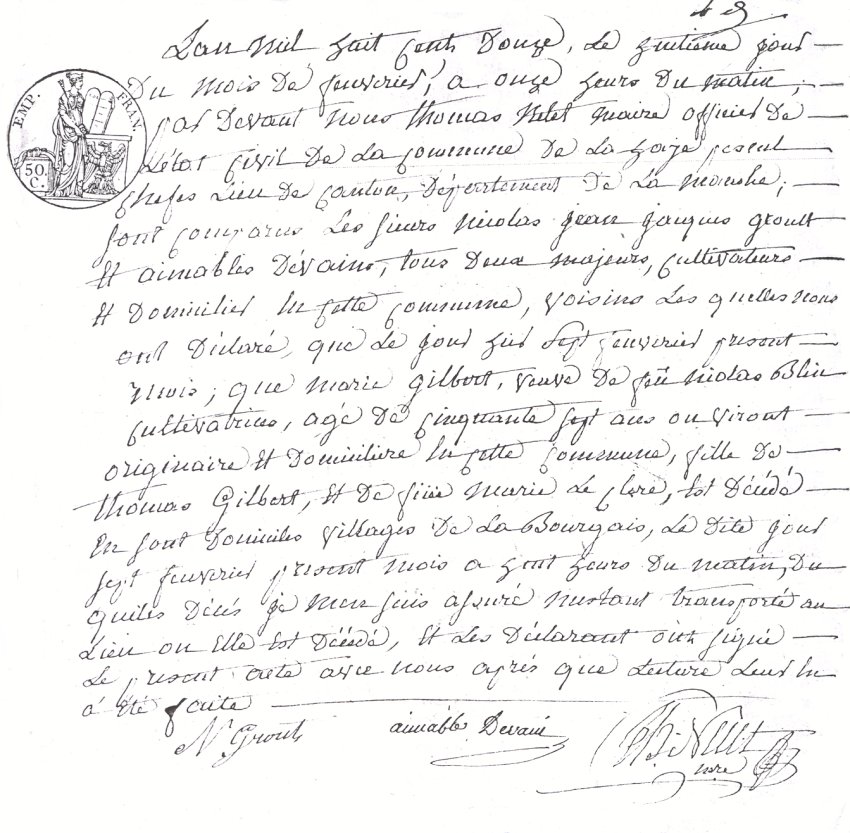 49
L'an mil huit cents Douze, Le huitieme jour
EMP. FRAN.
Du mois De feuverier, a onze heurs Du matin;
par Devant nous thomas Nelet maire officier De
50. C.
L'état Civil De La commune De La haye pesnel
Chefes Lieu De Canton, Département De La manche;
sont comparus Les sieurs nicolas jean jacques groult
Et aimables Dévains, tous Deux majeurs, cultivateurs
Et Domicilier En cette commune, voisins Les quelles nous
ont Déclaré, que Le jour hier sept feuverier present
mois; que marie Gilbert, veuve De feû nicolas Blin
cultivatrices, agé De cinquante sept ans ou viront
originaire Et Domiciliere En cette commune, fille De
thomas Gilbert, Et De feüe marie Le clere, Est Décédé
En sont Domiciles villages De La Bourgais, Le Dite jour
sept feuverier present mois a huit heurs Du matin, Du
quiles Décés je men suis assuré mestant transporté au
Lieu ou Elle Est Décédé, Et Les Déclarant onts signé
Le present acte avec nous aprés que Lecture Leur En
á été faite
N. Groult aimable Devain
mre